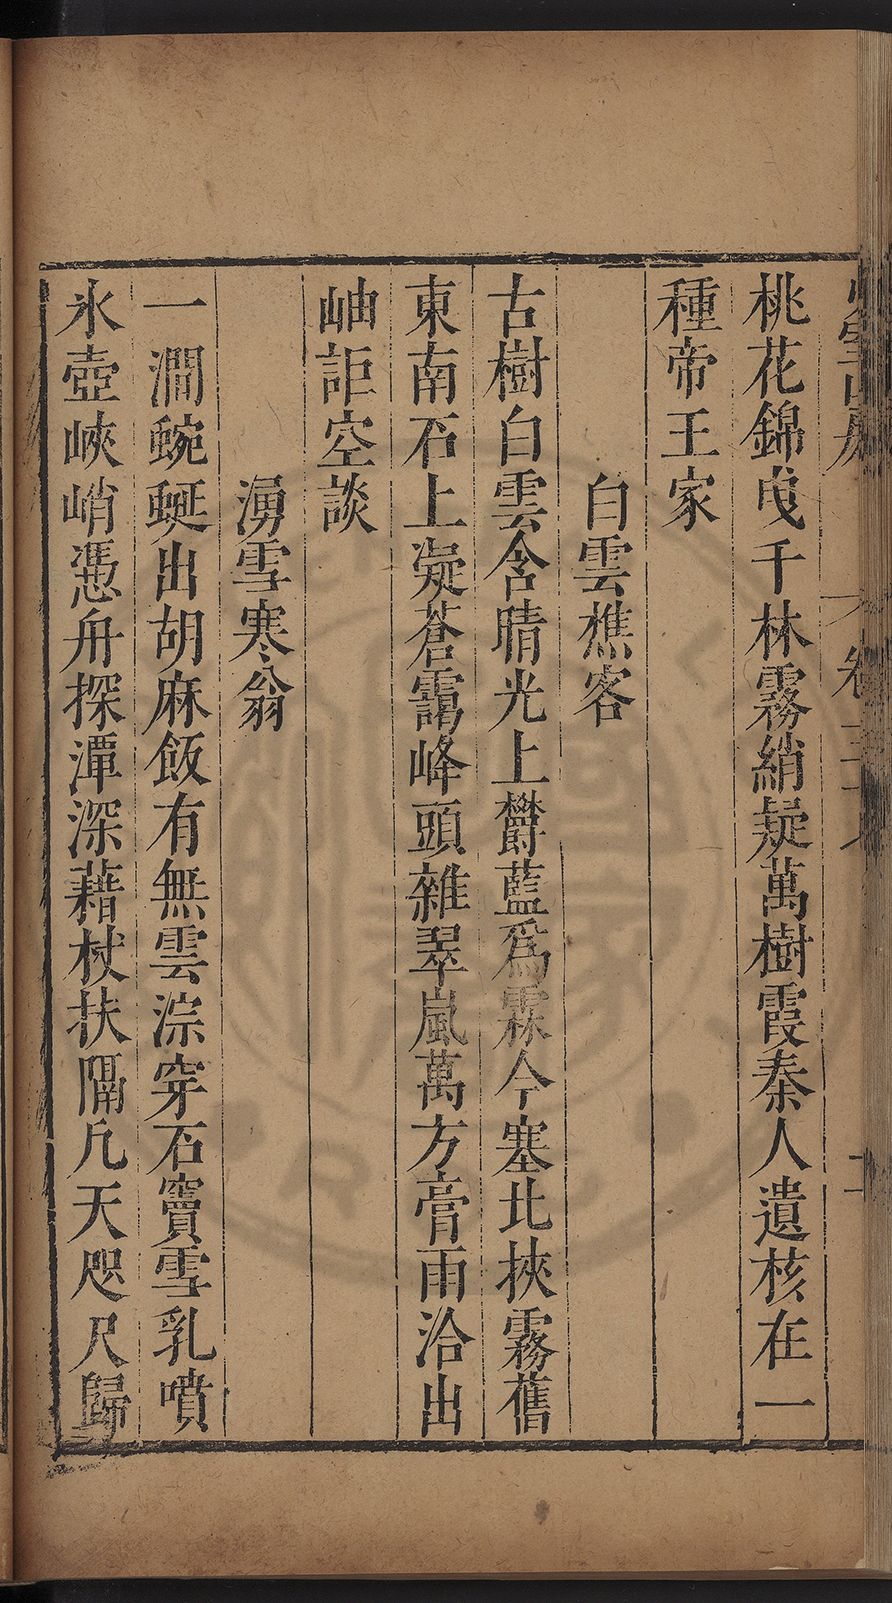 卷三
桃花錦曳千林霧綃疑萬樹霞秦人遺核在一
種帝王家
白雲樵客
古樹白雲含晴光上欝藍爲霖今塞北挾霧舊
東南石上凝蒼靄峰頭雜翠嵐萬方膏雨洽出
岫詎空談
湧雪寒翁
一澗蜿蜒出胡麻飯有無雲淙穿石竇雪乳噴
氷壺峽峭憑舟探潭深藉杖扶隔凡天咫尺歸